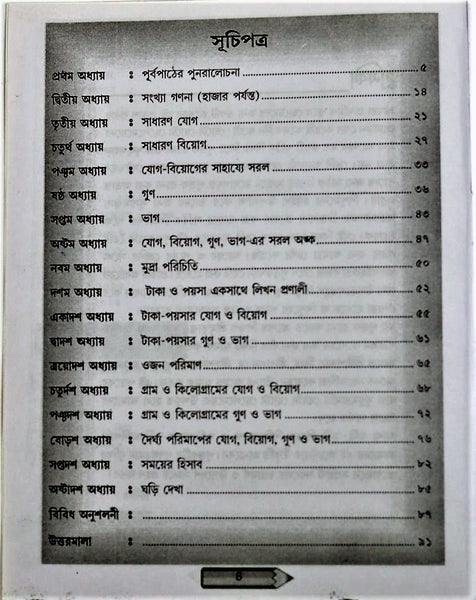 সূচিপত্র
প্রথম অধ্যায় : পূর্বপাঠের পুনরালোচনা ........ ৫
দ্বিতীয় অধ্যায় : সংখ্যা গণনা (হাজার পর্যন্ত) ........ ১৪
তৃতীয় অধ্যায় : সাধারণ যোগ ........ ২১
চতুর্থ অধ্যায় : সাধারণ বিয়োগ ........ ২৭
পঞ্চম অধ্যায় : যোগ-বিয়োগের সাহায্যে সরল ........ ৩৩
ষষ্ঠ অধ্যায় : গুণ ........ ৩৬
সপ্তম অধ্যায় : ভাগ ........ ৪৩
অষ্টম অধ্যায় : যোগ, বিয়োগ, গুণ, ভাগ-এর সরল অঙ্ক ........ ৪৭
নবম অধ্যায় : মুদ্রা পরিচিতি ........ ৫০
দশম অধ্যায় : টাকা ও পয়সা একসাথে লিখন প্রণালী ........ ৫২
একাদশ অধ্যায় : টাকা-পয়সার যোগ ও বিয়োগ ........ ৫৫
দ্বাদশ অধ্যায় : টাকা-পয়সার গুণ ও ভাগ ........ ৬১
ত্রয়োদশ অধ্যায় : ওজন পরিমাণ ........ ৬৫
চতুর্দশ অধ্যায় : গ্রাম ও কিলোগ্রামের যোগ ও বিয়োগ ........ ৬৮
পঞ্চদশ অধ্যায় : গ্রাম ও কিলোগ্রামের গুণ ও ভাগ ........ ৭২
ষোড়শ অধ্যায় : দৈর্ঘ্য পরিমাপের যোগ, বিয়োগ, গুণ ও ভাগ ........ ৭৬
সপ্তদশ অধ্যায় : সময়ের হিসাব ........ ৮২
অষ্টাদশ অধ্যায় : ঘড়ি দেখা ........ ৮৫
বিবিধ অনুশলনী : ........ ৮৭
উত্তরমালা : ........ ৯১
৪